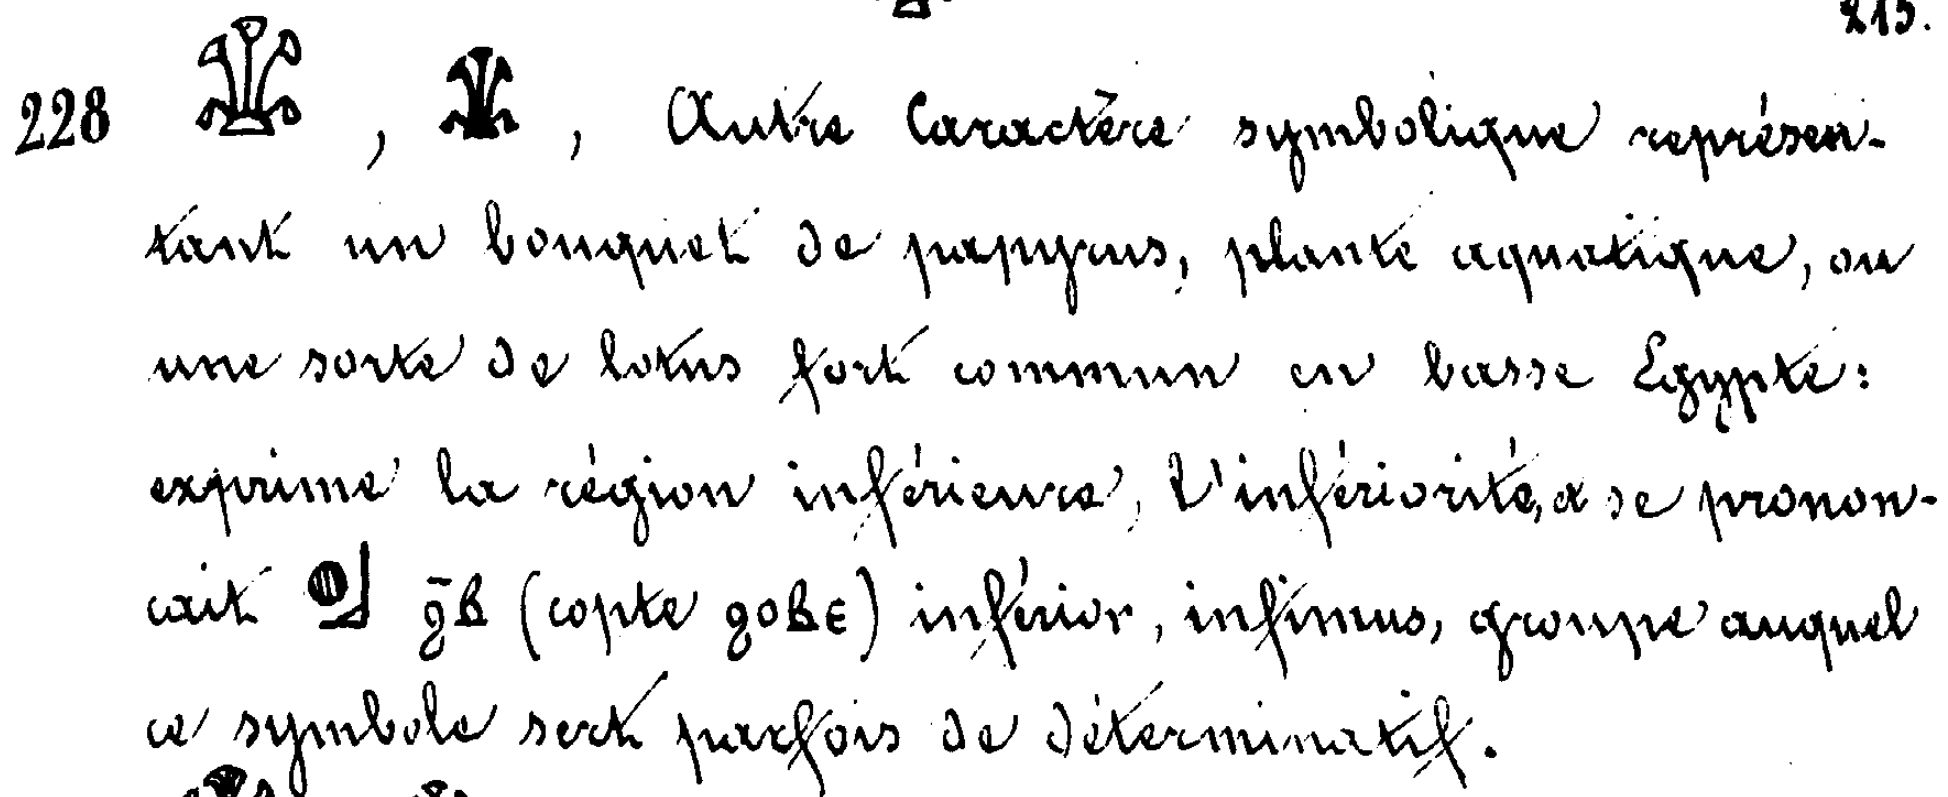 215.
228 , , Autre Caractère symbolique représen-
tant un bouquet de papyrus, plante aquatique, ou
une sorte de lotus fort commun en basse Egypte:
exprime la région inférieure, l'infériorité, & se pronon-
cait ϩ̄ⲃ (copte ϩⲟⲃⲉ) inférior, infimus, groupe auquel
ce symbole sert parfois de déterminatif.